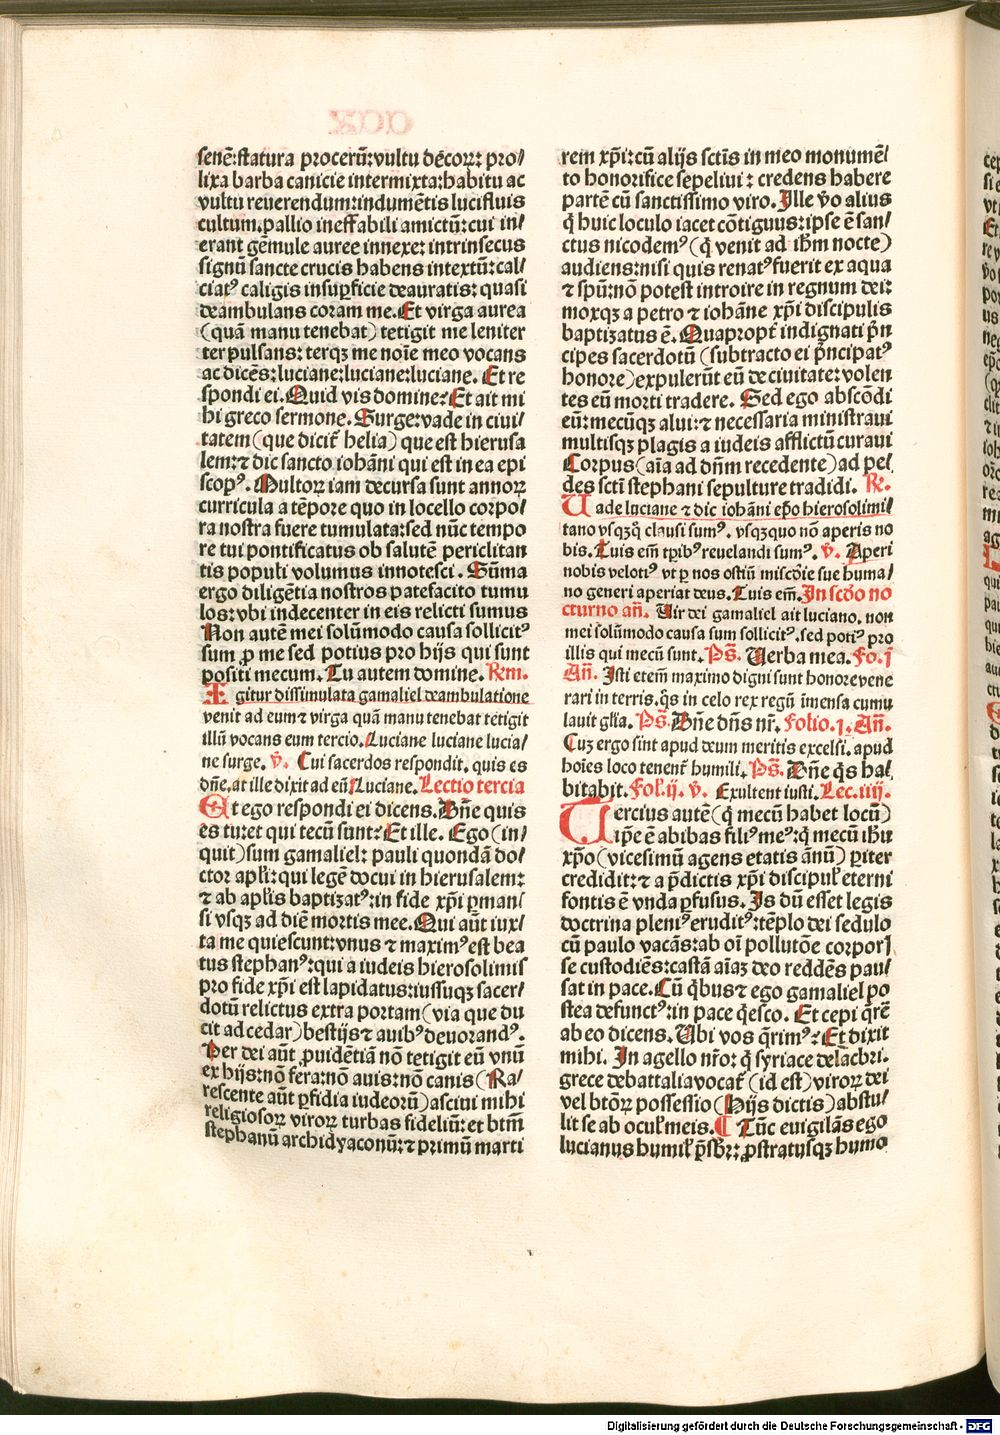 senē:statura procerū:vultu decorꝝ: pro/
lixa barba canicie intermixta:habitu ac
vultu reuerendum:indumētis lucifluis
cultum.pallio ineffabili amictū:cui in/
erant gēmule auree innexe: intrinsecus
signū sancte crucis habens intextū:cal/
ciatꝰ caligis insuꝑficie deauratis: quasi
deambulans coram me.Et virga aurea
(quā manu tenebat) tetigit me leniter
ter pulsans: terqꝫ me noīe meo vocans
ac dicēs:luciane:luciane:luciane. Et re
spondi ei.Quid vis domine:Et ait mi
hi greco sermone.Surge:vade in ciui/
tatem (que dicit᷑ helia) que est hierusa
lem:⁊ dic sancto iohāni qui est in ea epi
scopꝰ. Multoꝝ iam decursa sunt annoꝝ
curricula a tēpore quo in locello corpo/
ra nostra fuere tumulata:sed nūc tempo
re tui pontificatus ob salutē periclitan
tis populi volumus innotesci. Sūma
ergo diligētia nostros patefacito tumu
los:vbi indecenter in eis relicti sumus
Non autē mei solūmodo causa sollicitꝰ
sum ꝓ me sed potius pro hijs qui sunt
positi mecum. Tu autem domine. Rm.
Igitur dissimulata gamaliel deambulatione
venit ad eum ⁊ virga quā manu tenebat tetigit
illū vocans eum tercio.Luciane luciane lucia/
ne surge. v̄. Cui sacerdos respondit. quis es
dn̄e.at ille dixit ad eū Luciane. Lectio tercia
Et ego respondi ei dicens.Bn̄e quis
es tu:et qui tecū sunt: Et ille. Ego (in/
quit) sum gamaliel: pauli quondā do/
ctor apl̄i:qui legē docui in hierusalem:
⁊ ab apl̄is baptizatꝰ:in fide xp̄i ꝑman/
si vsqꝫ ad diē mortis mee. Qui aūt iux/
ta me quiescunt:vnus ⁊ maximꝰ est bea
tus stephanꝰ:qui a iudeis hierosolimis
pro fide xp̄i est lapidatus:iussuqꝫ sacer/
dotū relictus extra portam (via que du
cit ad cedar) bestijs ⁊ auibꝰ deuorandꝰ.
Per dei aūt ꝓuidētiā nō tetigit eū vnū
ex hijs:nō fera:nō auis:nō canis (Ra/
rescente aūt ꝑfidia iudeorū) asciui mihi
religiosoꝝ viroꝝ turbas fideliū:et btm̄
stephanū archidyaconū:⁊ primū marti
rem xp̄i:cū alijs sctīs in meo monumē/
to honorifice sepeliui: credens habere
partē cū sanctissimo viro. Ille v̄o alius
q̄ huic loculo iacet cōtiguus:ipse ē san/
ctus nicodemꝰ (q̄ venit ad ih̄m nocte)
audiens:nisi quis renatꝰ fuerit ex aqua
⁊ spū:nō potest introire in regnum dei:
moxqꝫ a petro ⁊ iohāne xp̄i discipulis
baptizatus ē. Quapropt᷑ indignati p̄n
cipes sacerdotū (subtracto ei p̄ncipatꝰ
honore) expulerūt eū de ciuitate: volen
tes eū morti tradere. Sed ego abscōdi
eū:mecūqꝫ alui:⁊ necessaria ministraui
multisqꝫ plagis a iudeis afflictū curaui
Corpus (aīa ad dn̄m recedente) ad pe/
des sctī stephani sepulture tradidi. Rm̄.
Uade luciane ⁊ dic iohāni ep̄o hierosolimi/
tano vsqꝫq̄ clausi sumꝰ. vsqꝫquo nō aperis no
bis. Tuis em̄ tp̄ibꝰ reuelandi sumꝰ. v̄. Aperi
nobis velotiꝰ vt ꝑ nos ostiū mis̄cōdie sue huma/
no generi aperiat deus. Tuis em̄.In scd̄o no
cturno an̄. Uir dei gamaliel ait luciano. non
mei solūmodo causa sum sollicitꝰ. sed potiꝰ pro
illis qui mecū sunt. Ps̄. Uerba mea. Fo.j
An̄. Isti etem̄ maximo digni sunt honore vene
rari in terris.q̄s in celo rex regū īmensa cumu
lauit gl̄ia. Ps̄.Bn̄e dn̄s nr̄. Folio.j. An̄.
Cuꝫ ergo sint apud deum meritis excelsi. apud
hoīes loco tenent᷑ humili. Ps̄. Dn̄e q̄s ha/
bitabit. Fol̄.ij. v̄. Exultent iusti. Lec.iiij.
Tercius autē (q̄ mecū habet locū)
ip̄e ē abibas filiꝰ meꝰ:q̄ mecū ih̄u
xp̄o (vicesimū agens etatis ānū) ꝑiter
credidit:⁊ a p̄dictis xp̄i discipul̄ eterni
fontis ē vnda ꝑfusus. Is dū esset legis
doctrina pleniꝰ eruditꝰ:tēplo dei sedulo
cū paulo vacās:ab oī pollutōe corporꝭ
se custodiēs:castā aīaꝫ deo reddēs pau/
sat in pace.Cū q̄bus ⁊ ego gamaliel po
stea defunctꝰ:in pace q̄esco. Et cepi q̄rē
ab eo dicens. Ubi vos q̄rimꝰ: Et dixit
mihi. In agello nr̄o: q̄ syriace delacbri.
grece debattalia vocat᷑ (id est) viroꝝ dei
vel btōꝝ possessio (Hijs dictis) abstu/
lit se ab ocul̄ meis. Tūc euigilās ego
lucianus humil̄ p̄sbr̄: ꝓstratusqꝫ humo
Digitalisierung gefördert durch die Deutsche Forschungsgemeinschaft - DFG